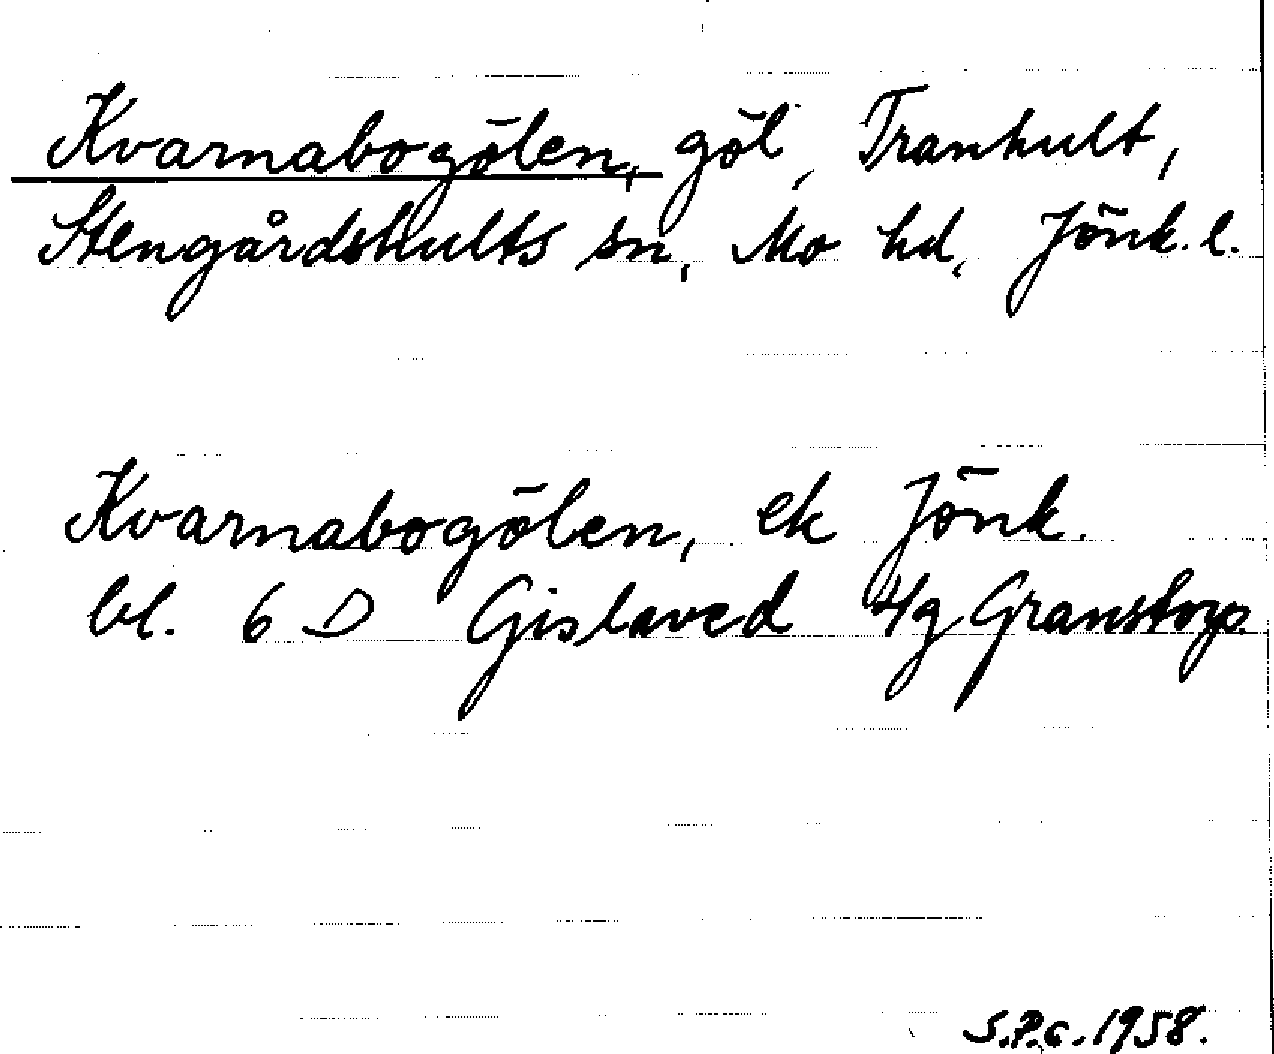 Kvarnabogölen, göl, Tranhult,
Stengårdshults sn, Mo hd, Jönk. l.
Kvarnabogölen, ek Jönk.
bl. 6 D Gislaved 4g Granstorp.
S.P.G. 1958.